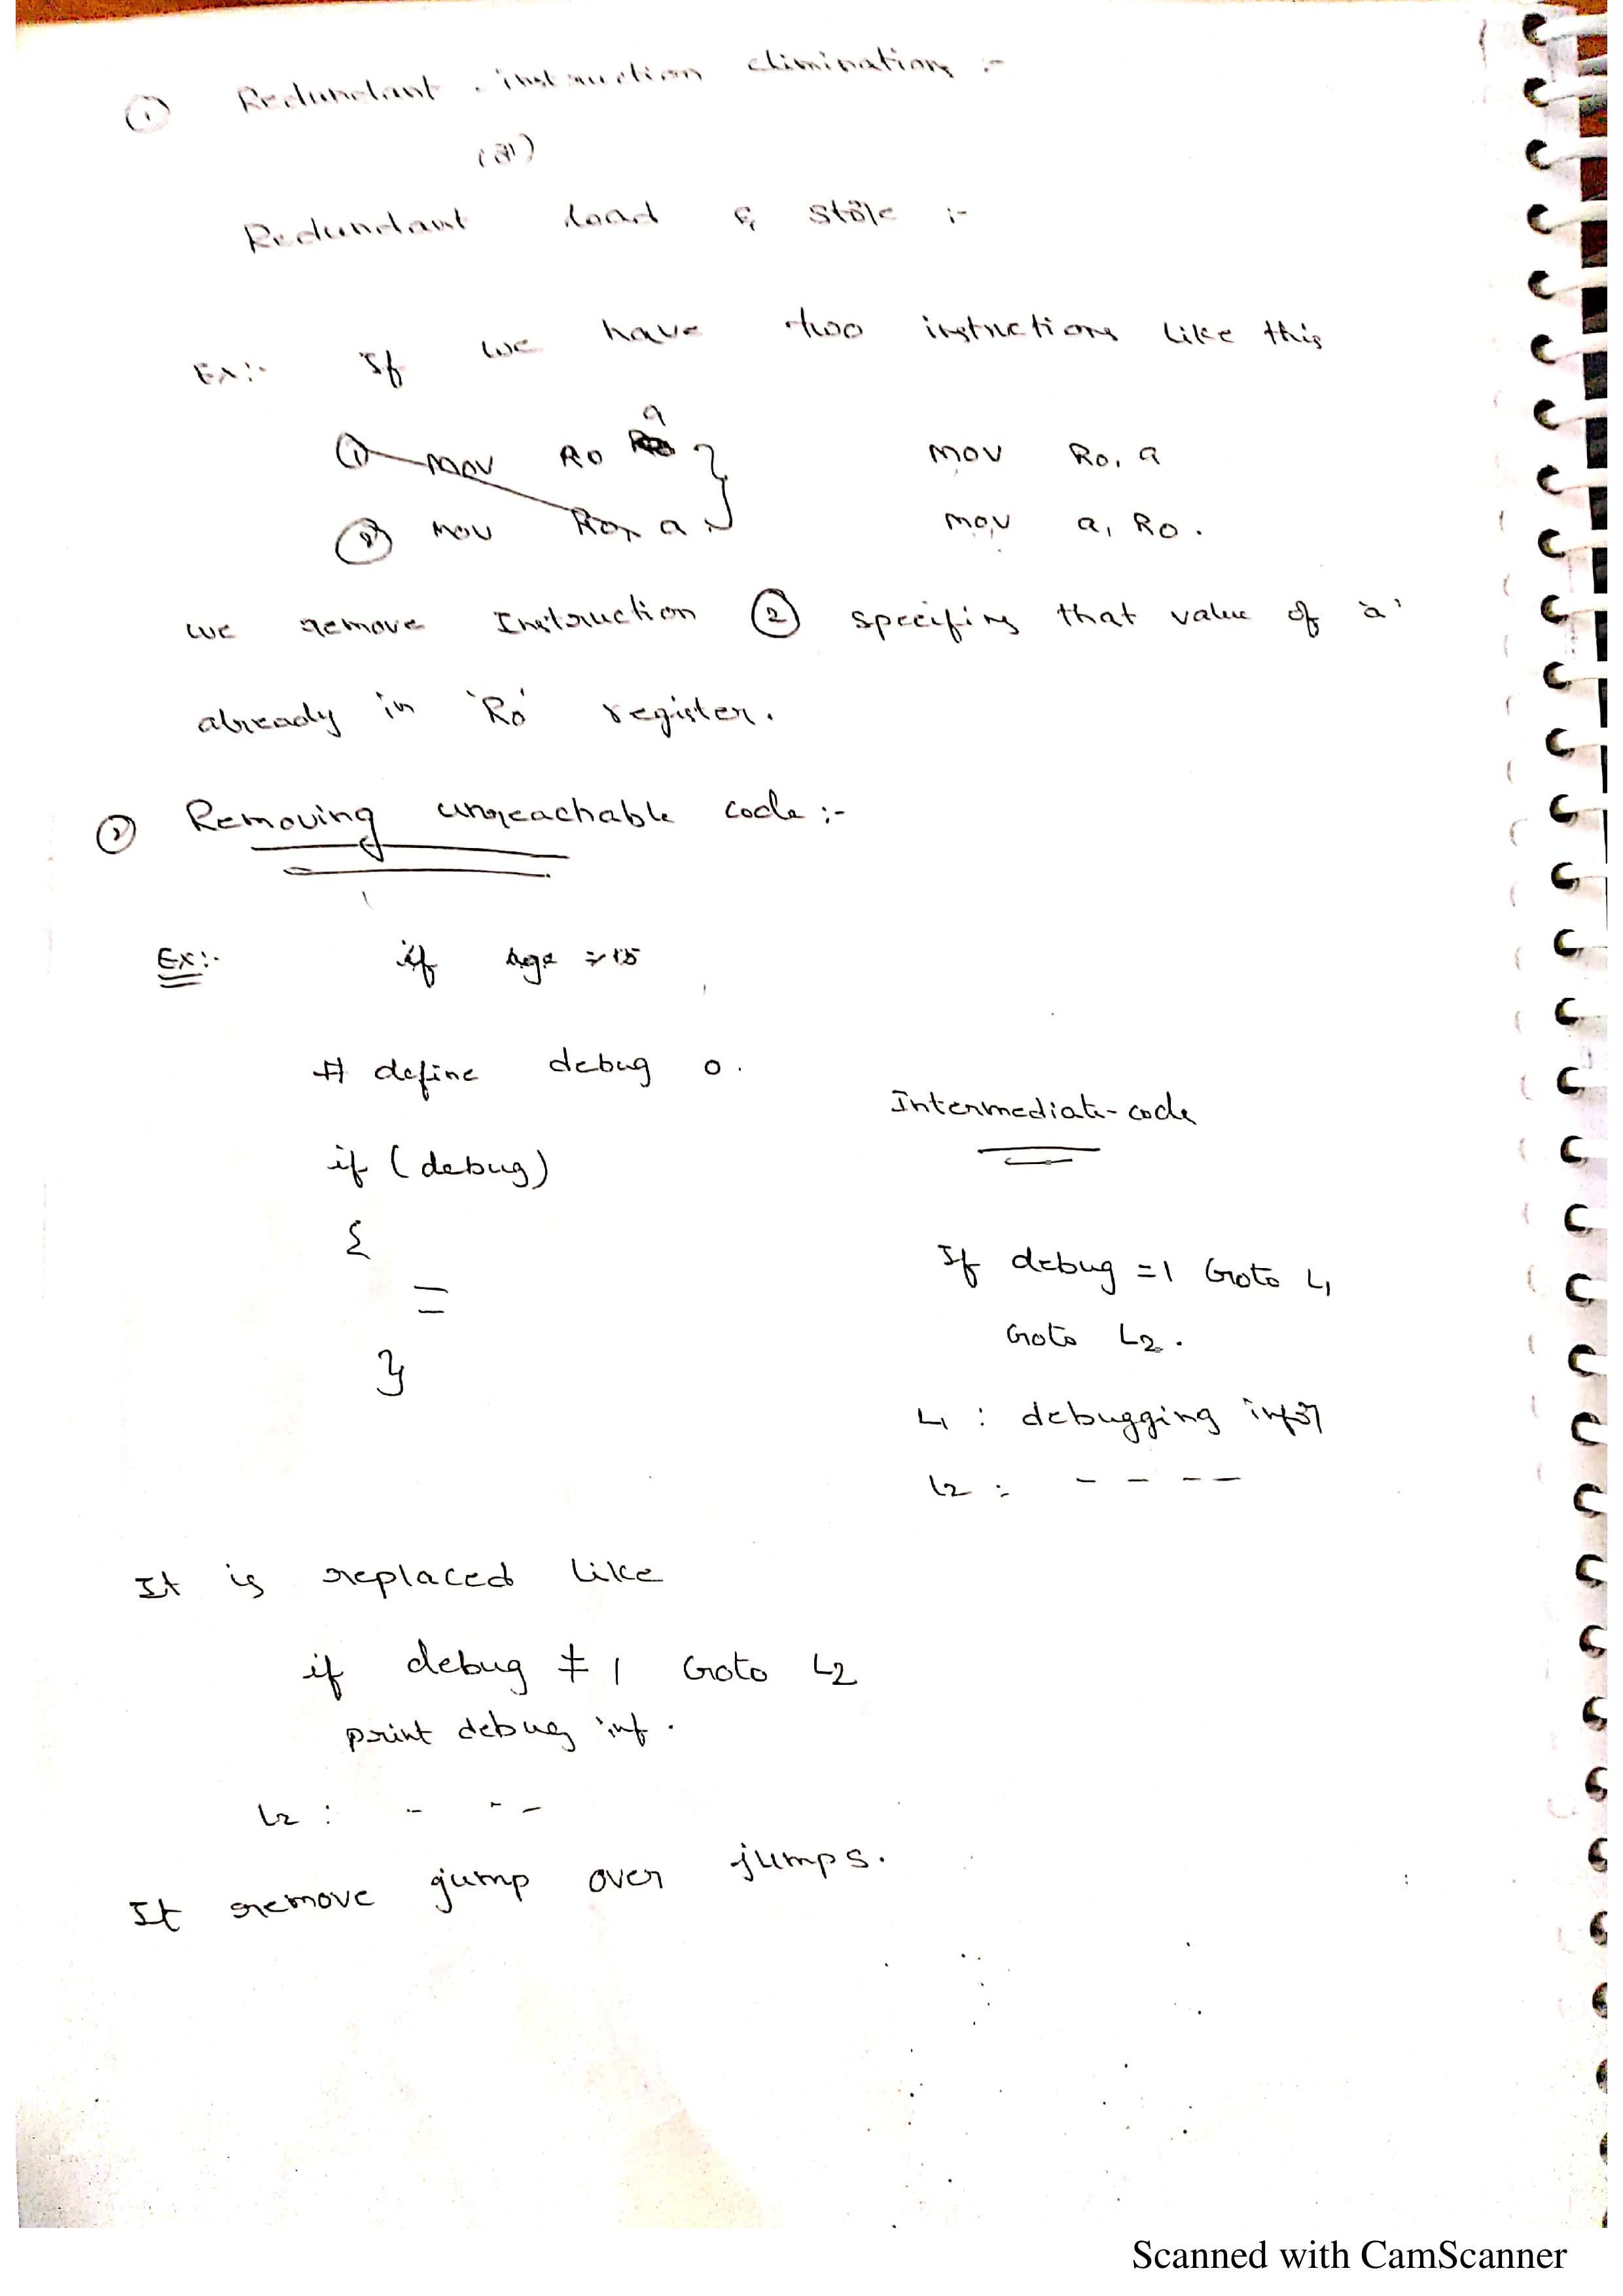 ① Redundant instruction elimination :-
(or)
Redundant load & store :-
Ex:- If we have two instructions like this
① mov R0 a
② mov R0, a
mov R0, a
mov a, R0.
we remove Instruction ② specifing that value of 'a'
already in 'R0' register.
② Removing unreachable code :-
Ex:- if age
# define debug 0.
if (debug)
{
=
}
Intermediate-code
If debug =1 Goto L1
Goto L2.
L1 : debugging infor
L2 : - - - -
It is replaced like
if debug ≠ 1 Goto L2
print debug inf.
L2 : - - -
It remove jump over jumps.
Scanned with CamScanner